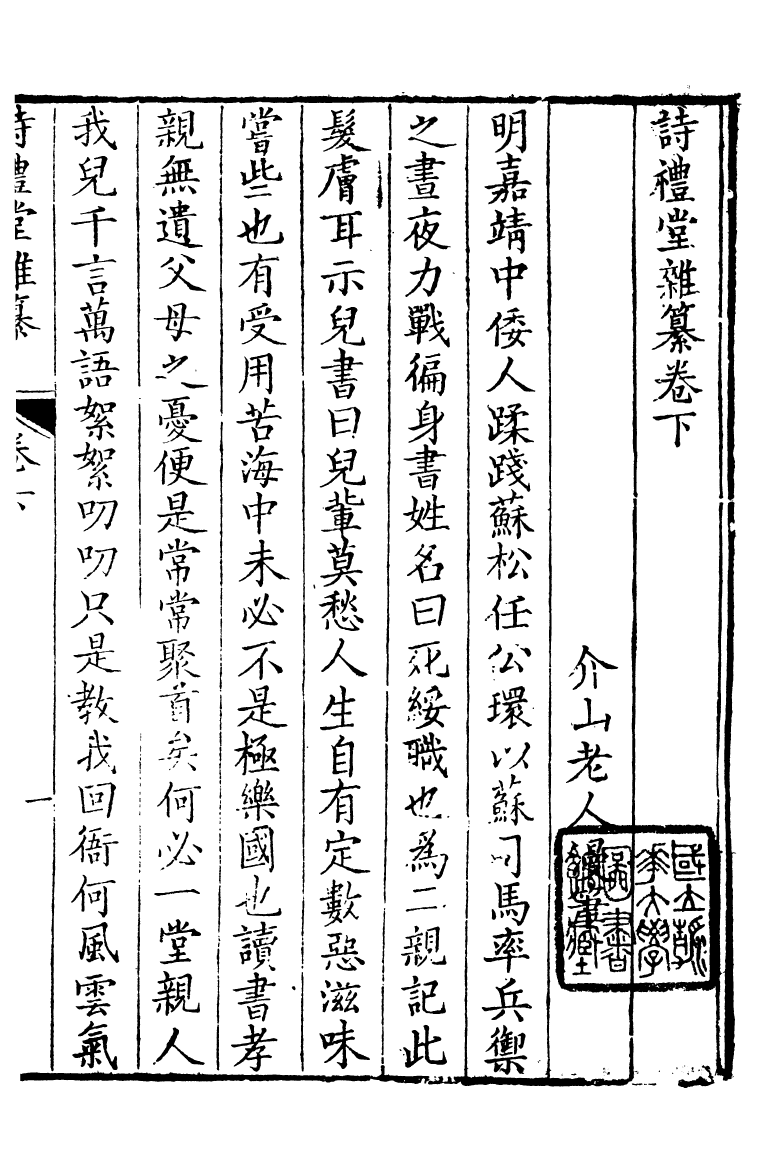 詩禮堂雜纂卷下
介山老人
明嘉靖中倭人蹂踐蘇松任公環以蘇司馬率兵禦
之晝夜力戰徧身書姓名曰死綏職也爲二親記此
髮膚耳示兒書曰兒輩莫愁人生自有定數惡滋味
嘗些也有受用苦海中未必不是極樂國也讀書孝
親無遺父母之憂便是常常聚首矣何必一堂親人
我兒千言萬語絮絮叨叨只是教我回衙何風雲氣
詩禮堂雜纂
卷下
一
國立
大學
圖書